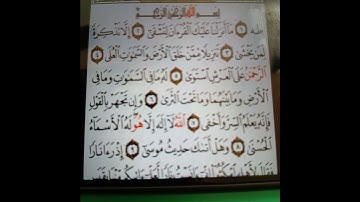 بِسْمِ اللَّهِ الرَّحْمَٰنِ الرَّحِيمِ
طه ١ مَا أَنزَلْنَا عَلَيْكَ الْقُرْءَانَ لِتَشْقَىٰ ٢ إِلَّا تَذْكِرَةً
لِّمَن يَخْشَىٰ ٣ تَنزِيلًا مِّمَّنْ خَلَقَ الْأَرْضَ وَالسَّمَٰوَٰتِ الْعُلَى ٤
الرَّحْمَٰنُ عَلَى الْعَرْشِ اسْتَوَىٰ ٥ لَهُ مَا فِي السَّمَٰوَٰتِ وَمَا فِي
الْأَرْضِ وَمَا بَيْنَهُمَا وَمَا تَحْتَ الثَّرَىٰ ٦ وَإِن تَجْهَرْ بِالْقَوْلِ
فَإِنَّهُ يَعْلَمُ السِّرَّ وَأَخْفَى ٧ اللَّهُ لَا إِلَٰهَ إِلَّا هُوَ لَهُ الْأَسْمَاءُ
الْحُسْنَىٰ ٨ وَهَلْ أَتَىٰكَ حَدِيثُ مُوسَىٰ ٩ إِذْ رَءَا نَارًا
فَقَالَ لِأَهْلِهِ امْكُثُوا